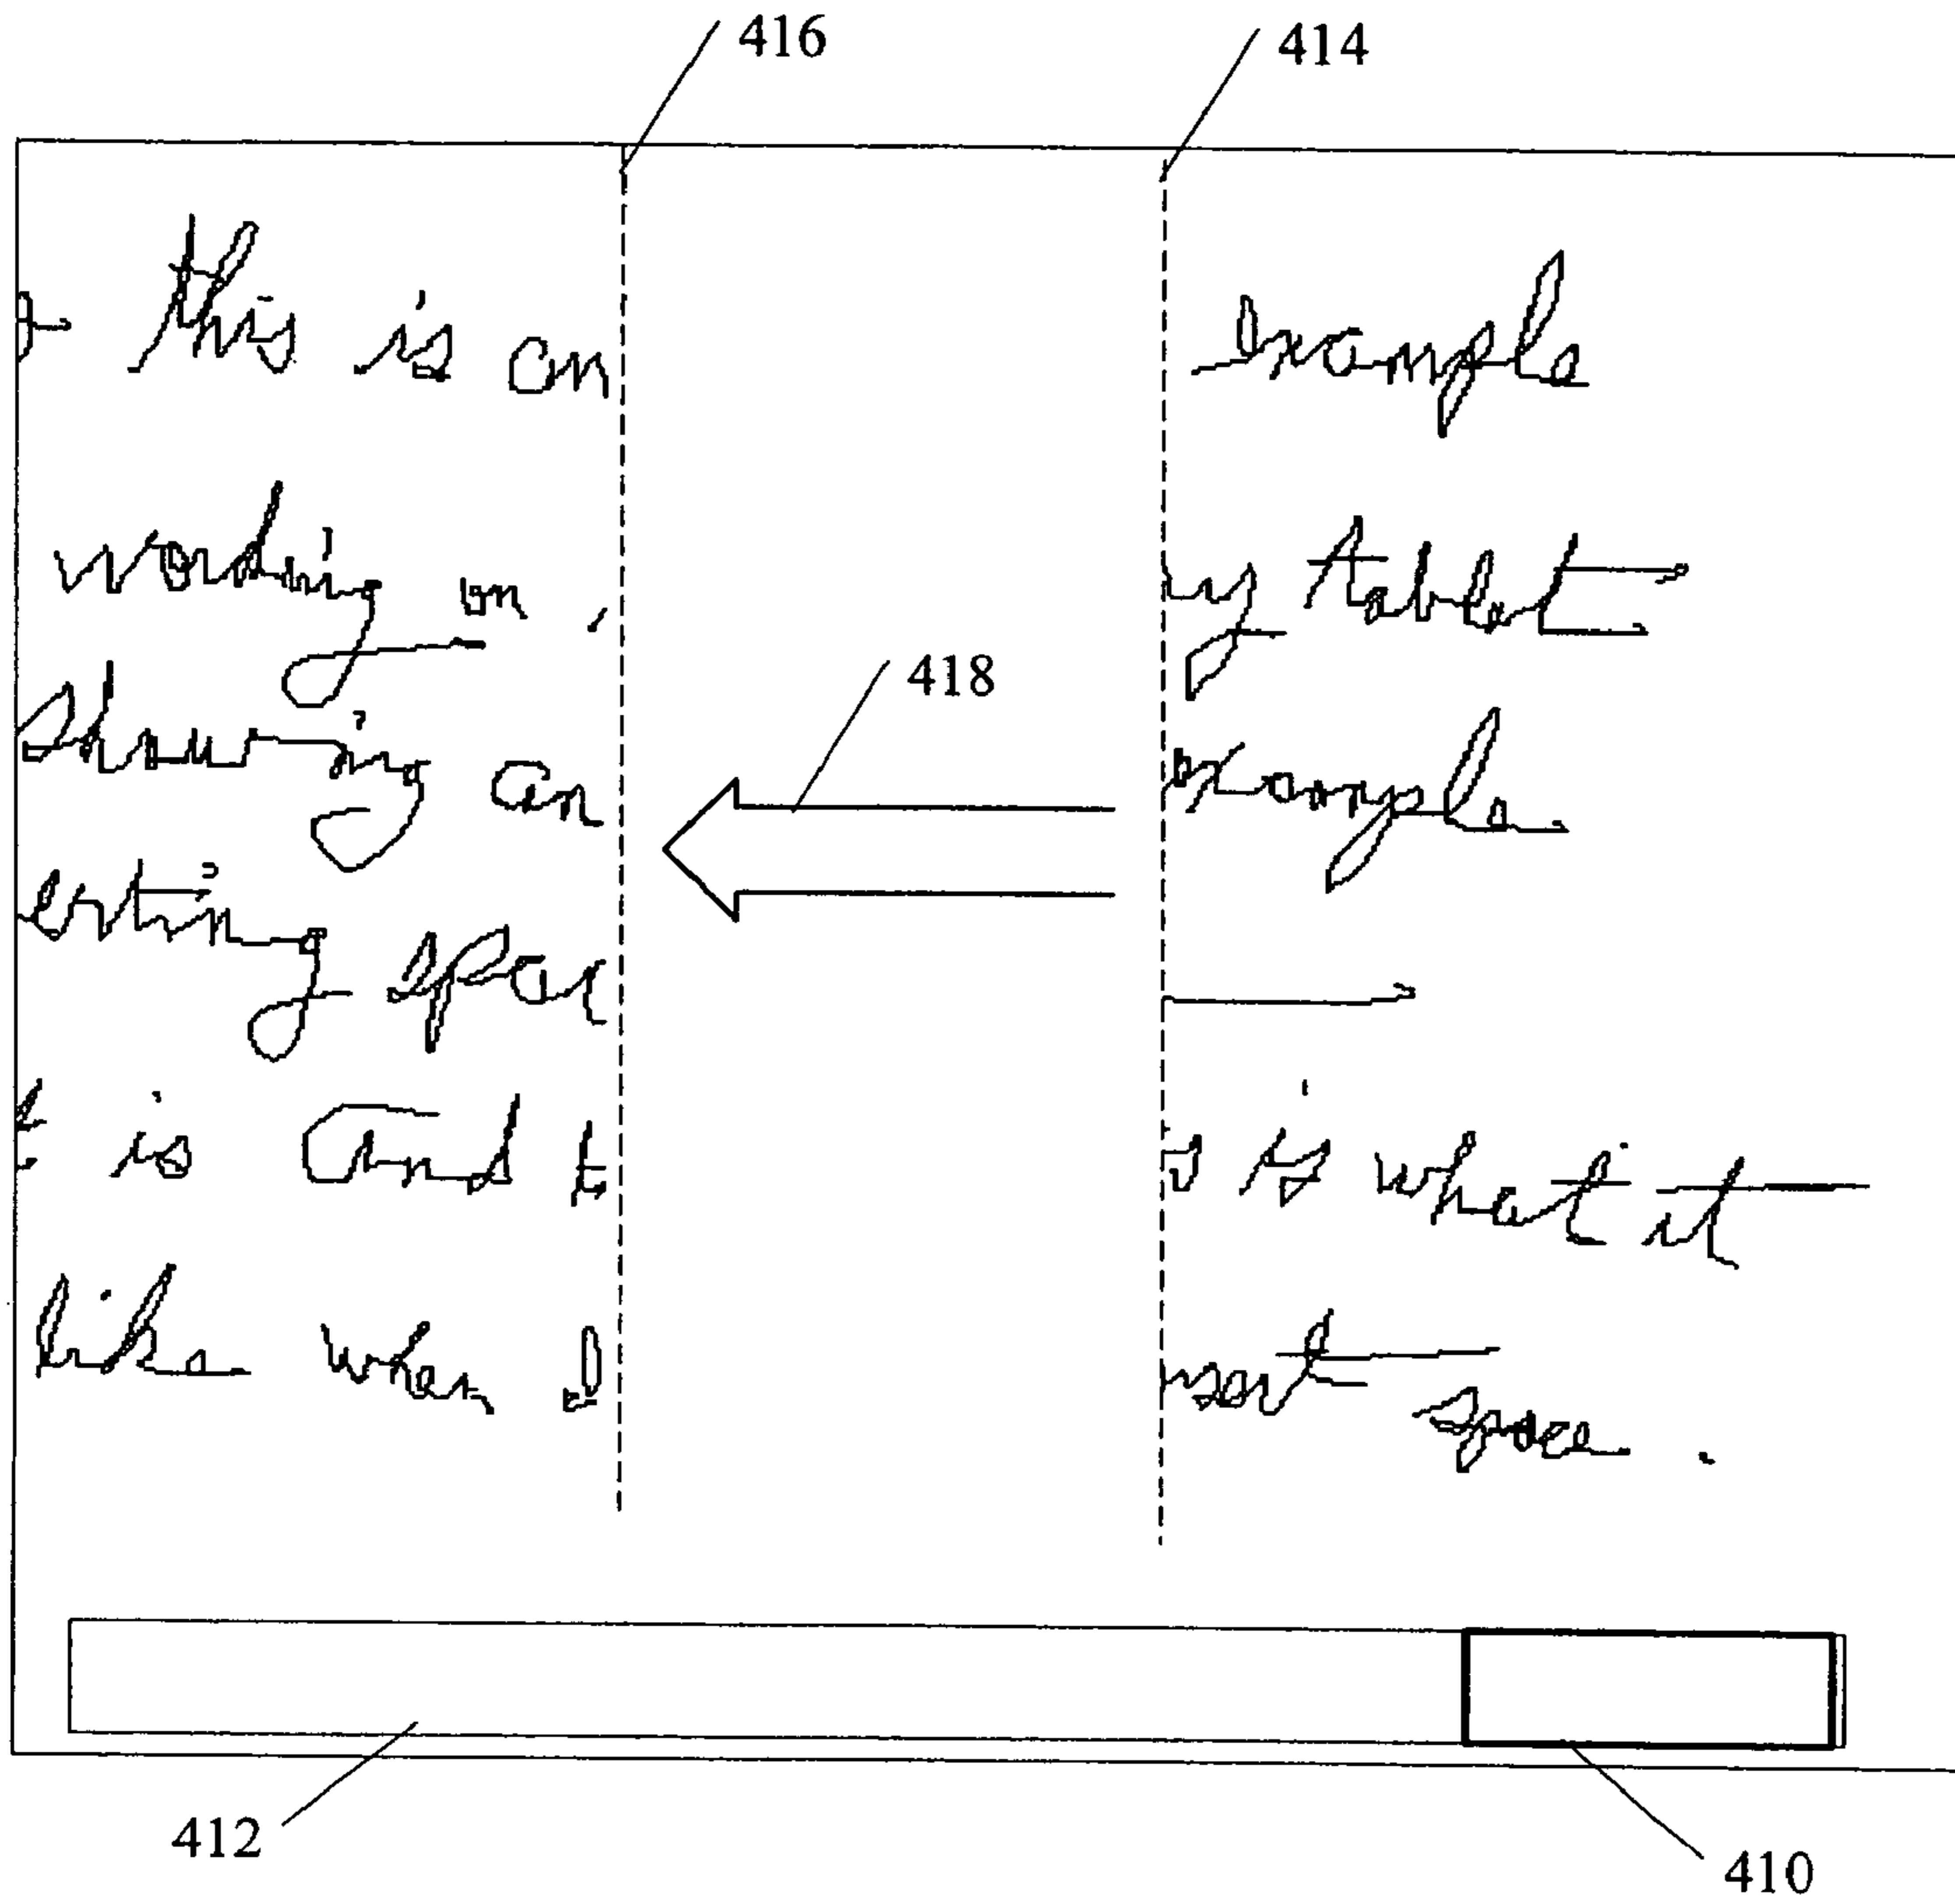 416 414
this is an example
working on my tablet
showing an example
erting spac
is And t s is what it
like when I nsert space .
418
412
410